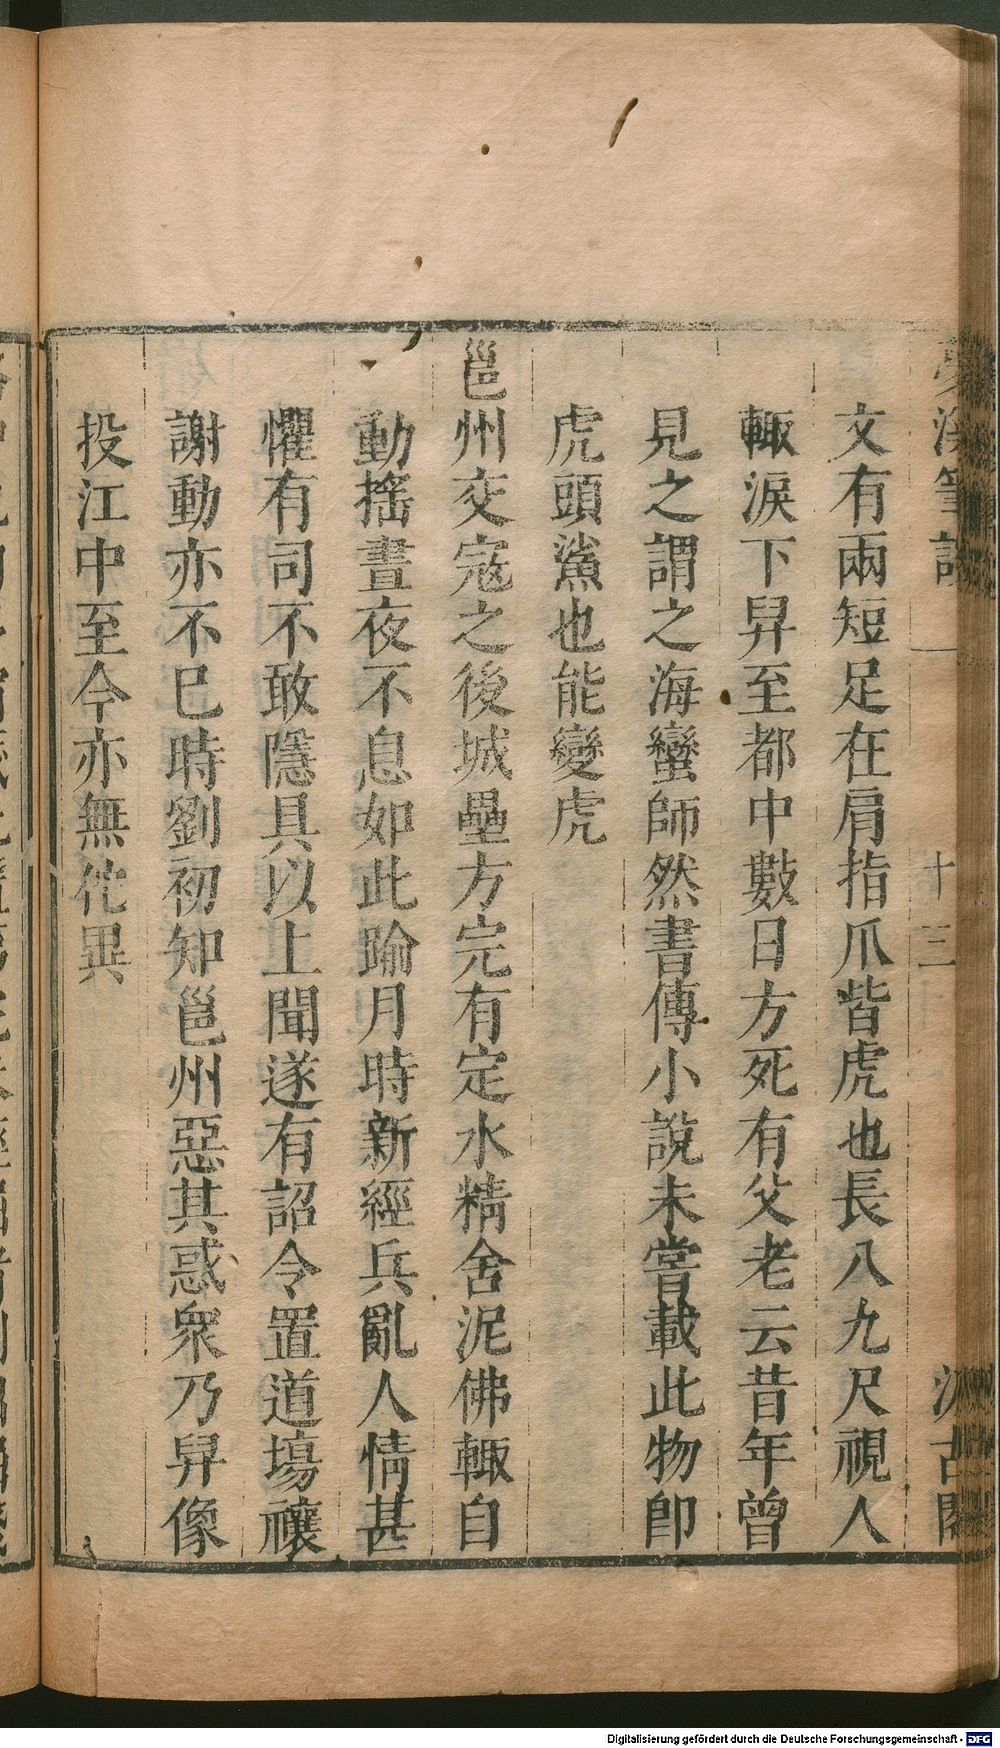 文有兩短足在肩指爪皆虎也長八九尺視人
輙淚下舁至都中數日方死有父老云昔年曾
見之謂之海蠻師然書傳小說未嘗載此物卽
虎頭鯊也能變虎
邕州交寇之後城壘方完有定水精舍泥佛輙自
動搖晝夜不息如此踰月時新經兵亂人情甚
懼有司不敢隱具以上聞遂有詔令置道塲禳
謝動亦不已時劉初知邕州惡其惑衆乃舁像
投江中至今亦無佗異
十三
Digitalisierung gefördert durch die Deutsche Forschungsgemeinschaft - DFG